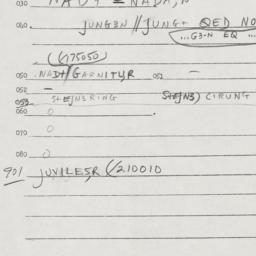 030 NADA
040 JUNG3N // JUNG+ QED NO
...G3-N EQ ...
(675050)
050 NADA/GARNITUR 051 –
052 –
053 STEJNSRING STEJNS) CIRUNG
060 0
070 0
080 0
901 JUVILESR (/210010